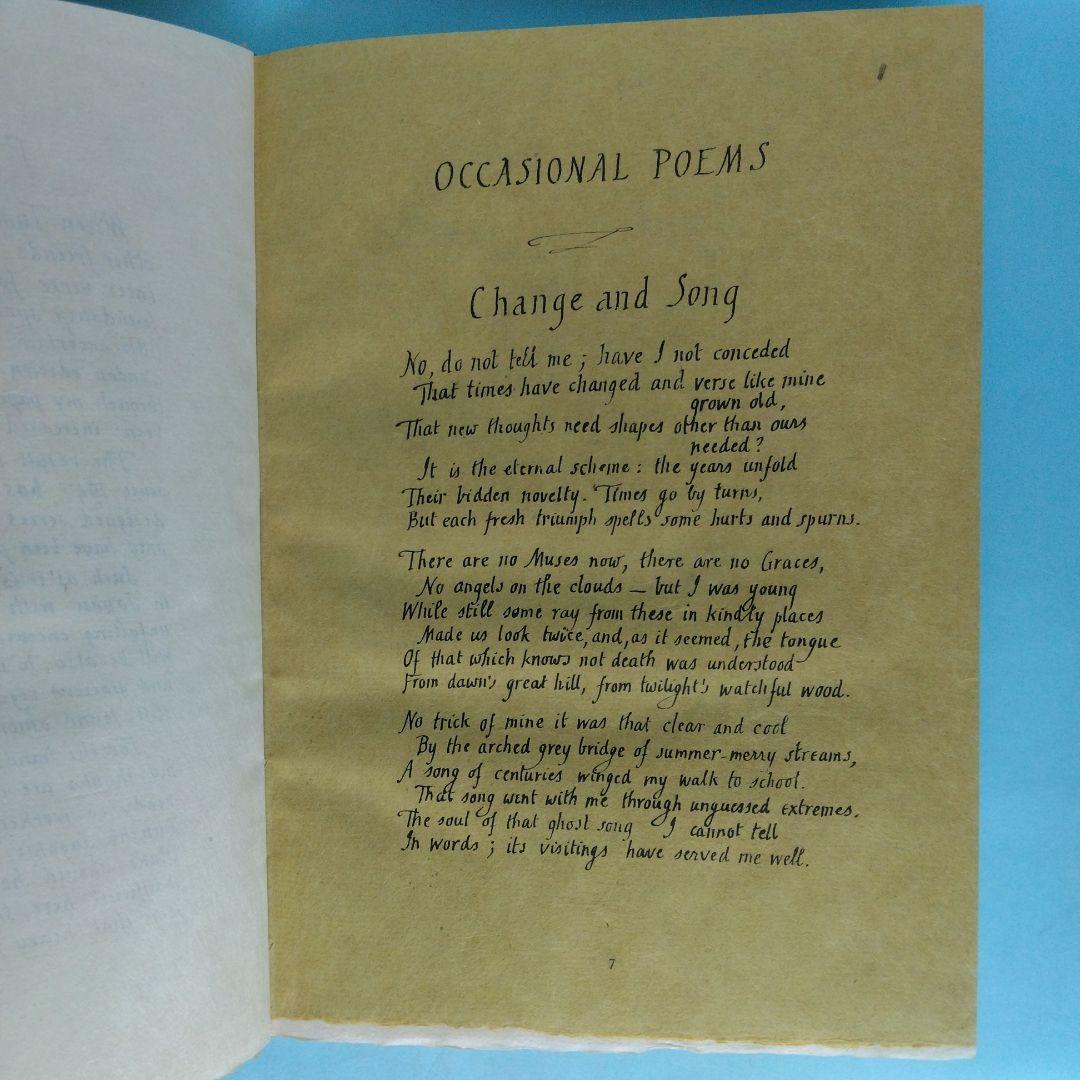 OCCASIONAL POEMS
Change and Song
No, do not tell me; have I not conceded
That times have changed and verse like mine
grown old,
That new thoughts need shapes other than ours
needed?
It is the eternal scheme: the years unfold
Their bidden novelty. Times go by turns,
But each fresh triumph spells some hurts and spurns.
There are no Muses now, there are no Graces,
No angels on the clouds — but I was young
While still some ray from these in kindly places
Made us look twice, and, as it seemed, the tongue
Of that which knows not death was understood
From dawn's great hill, from twilight's watchful wood.
No trick of mine it was that clear and cool
By the arched grey bridge of summer-merry streams,
A song of centuries winged my walk to school.
That song went with me through unguessed extremes.
The soul of that ghost song I cannot tell
In words; its visitings have served me well.
7